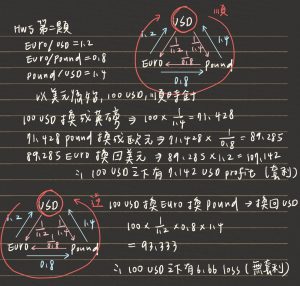 HW5 第二題
Euro/USD = 1.2
Euro/Pound = 0.8
Pound/USD = 1.4
USD
順
1.2
1.4
1/1.2
1/1.4
1/0.8
Euro
Pound
0.8
以美元始終, 100 USD, 順時針
100 USD 換成英鎊 ⇒ 100 × 1/1.4 = 71.428
71.428 pound 換成歐元 ⇒ 71.428 × 1/0.8 = 89.285
89.285 Euro 換回美元 ⇒ 89.285 × 1.2 = 107.142
∴ 100 USD 下有 7.142 USD profit (套利)
USD
逆
1.2
1.4
1/1.2
1/1.4
1/0.8
Euro
Pound
0.8
100 USD 換 Euro 換 Pound → 換回 USD
100 × 1/1.2 × 0.8 × 1.4
= 93.333
∴ 100 USD 下有 6.66 loss (無套利)